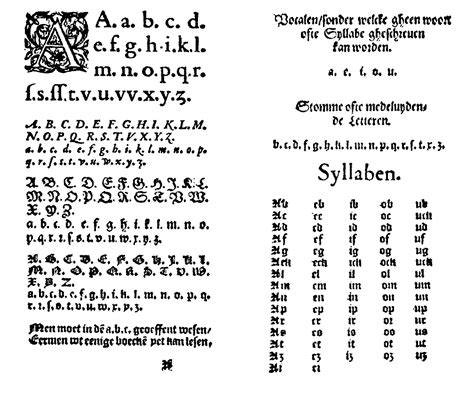 A A. a. b. c. d.
e. f. g. h. i. k. l.
m. n. o. p. q. r.
ſ. s. ſſ. t. v. u. vv. x. y. ʒ.
A. B. C. D. E. F. G. H. I. K. L. M.
N. O. P. Q. R. S. T. V. X. Y. Z.
a. b. c. d. e. f. g. h. i. k. l. m. n. o. p.
q. r. ſ. s. t. v. u. w. x. y. z.
A. B. C. D. E. F. G. H. I. K. L.
M. N. O. P. Q. R. S. T. V. W.
X. Y. Z.
a. b. c. d. e. f. g. h. i. k. l. m. n. o.
p. q. r. ſ. s. t. v. u. w. x. y. z.
A. B. C. D. E. F. G. H. I. K. L.
M. N. O. P. Q. R. S. T. V. W.
X. Y. Z.
a. b. c. d. e. f. g. h. i. k. l. m. n. o. p. q.
r. ſ. s. t. v. u. w. x. y. z.
Men moet in dē a.b.c. geoeffent weſen/
Eermen wt eenige boeckē yet kan leſen,
Vocalen/ſonder welcke gheen woort
ofte Syllabe gheſchreuen
kan worden.
a. e. i. o. u.
Stomme ofte medeluyden-
de Letteren.
b. c. d. f. g. h. k. l. m. n. p. q. r. ſ. t. x. z.
Syllaben.
Ab eb ib ob ub
Ac ec ic oc uch
Ad ed id od ud
Af ef if of uf
Ag eg ig og ug
Ack eck ick ock uck
Al el il ol ul
Am em im om um
An en in on un
Ap ep ip op up
Ar er ir or ur
As es is os us
At et it ot ut
Az ez iz oz uz
Ai ei